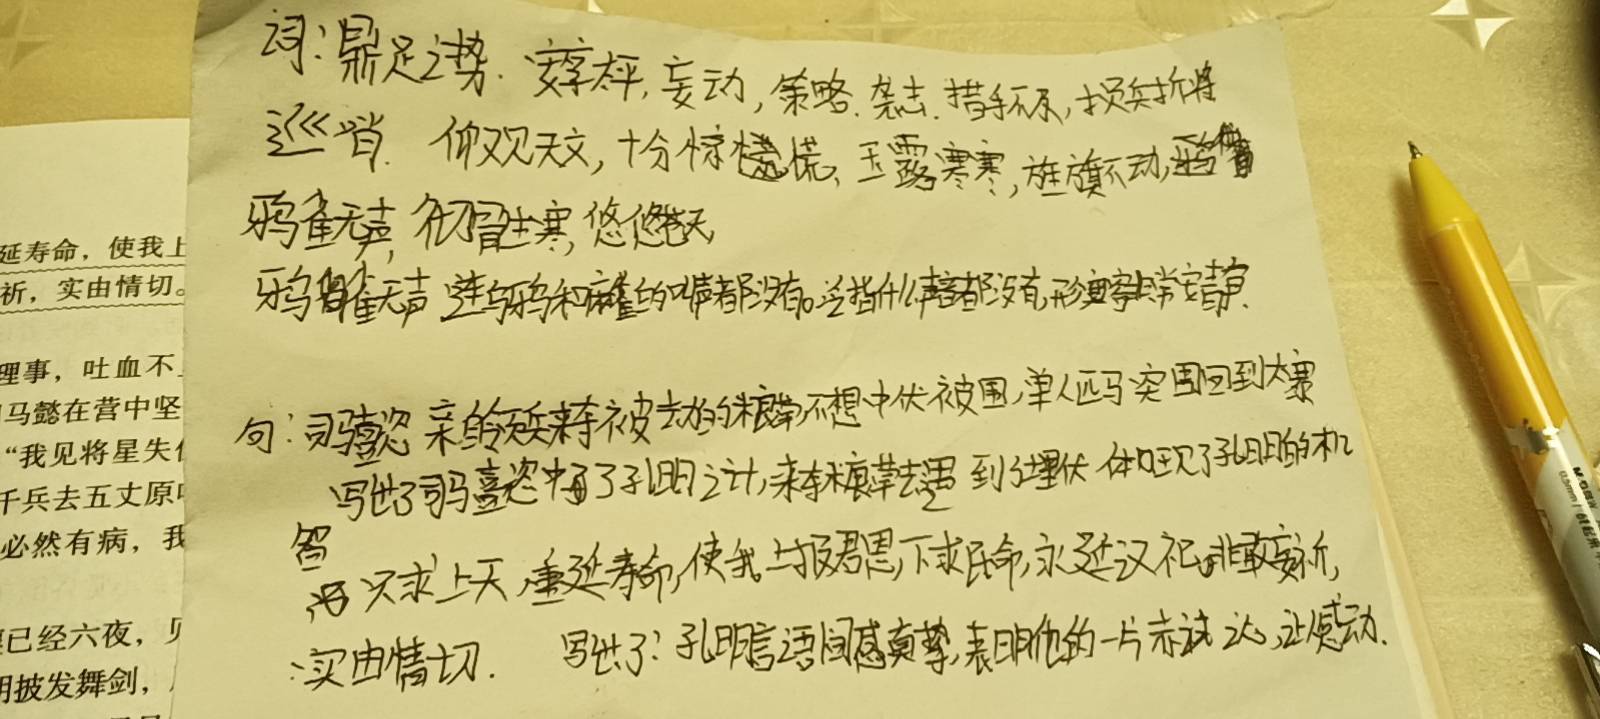 词：鼎足之势．安享太平，妄动，策略．袭击．措手不及，损兵折将
巡哨．仰观天文，十分惊慌，玉露寒寒，旌旗不动，
鸦雀无声，彻骨生寒，悠悠苍天
鸦雀无声 连乌鸦和麻雀的叫声都没有。泛指什么声音都没有，形容非常安静．
句：司马懿 亲领兵来 被 的粮草，不想中伏被围，单人匹马突围回到大寨
写出了司马懿中了孔明之计，来 粮草去遇到了埋伏 体现了孔明的机
智
只求上天，重延寿命，使我上报君恩，下求民命，永延汉祀．非敢妄祈，
：实由情切． 写出了：孔明言语间感真挚，表明他的一片赤诚之心，让 感动．
延寿命，使我上
祈，实由情切。
理事，吐血不
马懿在营中坚
“我见将星失
千兵去五丈原
必然有病，我
已经六夜，
明披发舞剑，
0.5mm